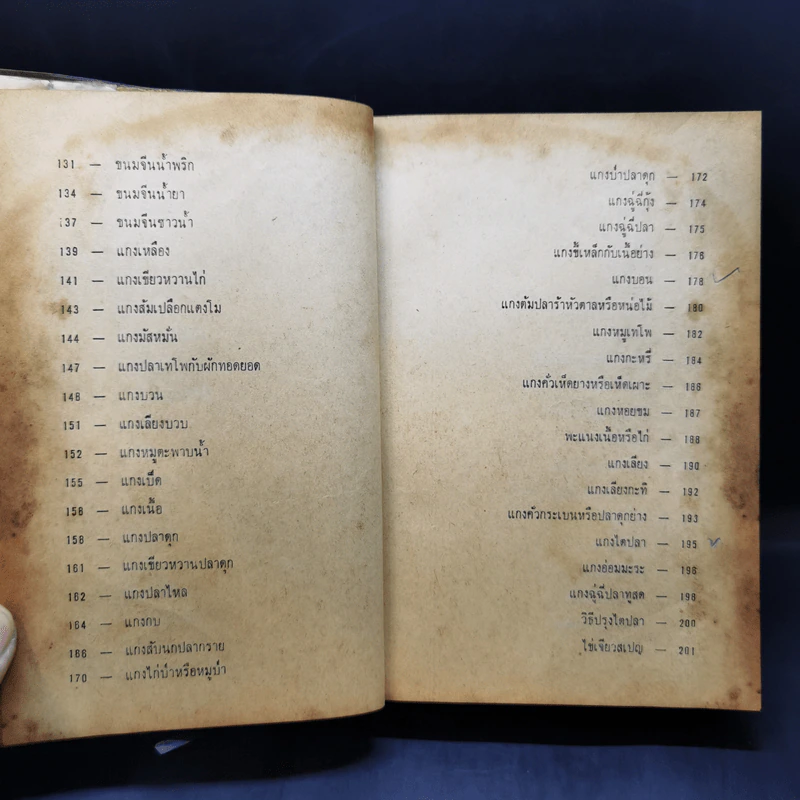 131 — ขนมจีนน้ำพริก
134 — ขนมจีนน้ำยา
137 — ขนมจีนซาวน้ำ
139 — แกงเหลือง
141 — แกงเขียวหวานไก่
143 — แกงส้มเปลือกแตงโม
144 — แกงมัสหมั่น
147 — แกงปลาเทโพกับผักทอดยอด
148 — แกงบวน
151 — แกงเลียงบวบ
152 — แกงหมูตะพาบน้ำ
155 — แกงเป็ด
156 — แกงเนื้อ
158 — แกงปลาดุก
161 — แกงเขียวหวานปลาดุก
162 — แกงปลาไหล
164 — แกงกบ
166 — แกงสับนกปลากราย
170 — แกงไก่ป่าหรือหมูป่า
แกงป่าปลาดุก — 172
แกงฉู่ฉี่กุ้ง — 174
แกงฉู่ฉี่ปลา — 175
แกงขี้เหล็กกับเนื้อย่าง — 176
แกงบอน — 178
แกงต้มปลาร้าหัวตาลหรือหน่อไม้ — 180
แกงหมูเทโพ — 182
แกงกะหรี่ — 184
แกงคั่วเห็ดยางหรือเห็ดเผาะ — 186
แกงหอยขม — 187
พะแนงเนื้อหรือไก่ — 188
แกงเลียง — 190
แกงเลียงกะทิ — 192
แกงคั่วกระเบนหรือปลาดุกย่าง — 193
แกงไตปลา — 195
แกงอ่อมมะระ — 196
แกงฉู่ฉี่ปลาทูสด — 198
วิธีปรุงไตปลา — 200
ไข่เจียวสเปญ — 201